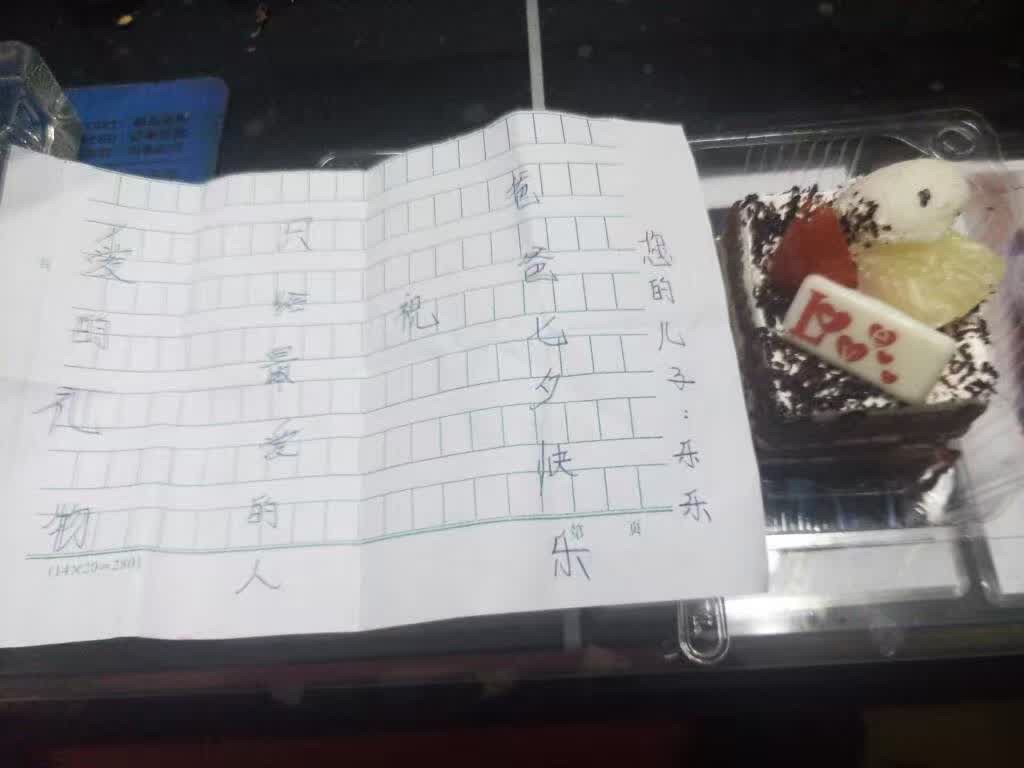 爱的礼物
只给最爱的人
祝
爸爸七夕快乐
您的儿子:乐乐
(14×20=280)
第 页